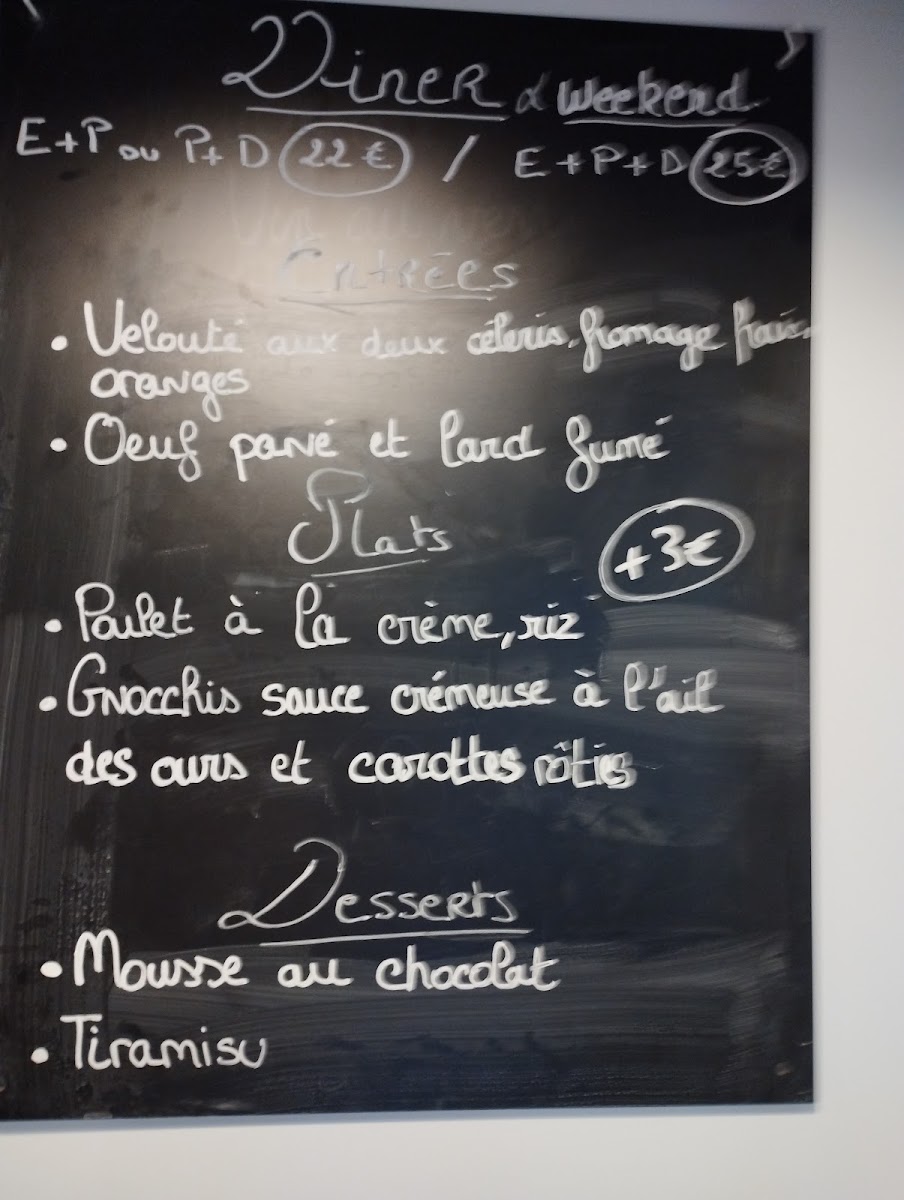 Diner & Weekend
E+P ou P+D 22€ / E+P+D 25€
Entrées
• Velouté aux deux céleris, fromage frais,
oranges
• Oeuf parvé et lard fumé
Plats
+3€
• Poulet à la crème, riz
• Gnocchis sauce crémeuse à l'ail
des ours et carottes rôties
Desserts
• Mousse au chocolat
• Tiramisu